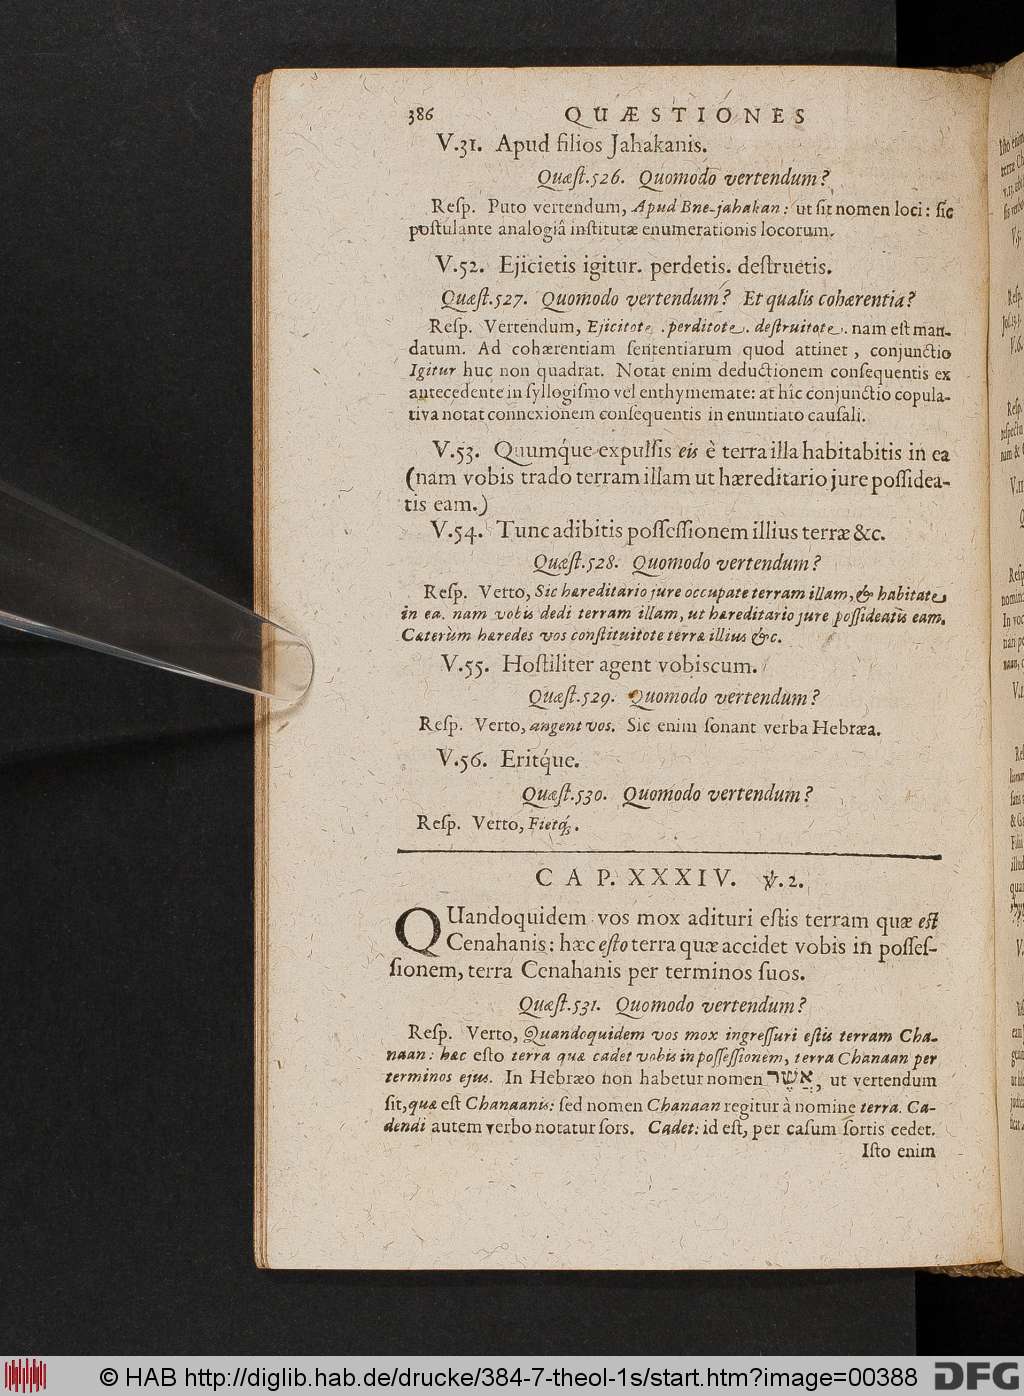 386 QUÆSTIONES
V.31. Apud filios Jahakanis.
Quæſt.526. Quomodo vertendum?
Reſp. Puto vertendum, Apud Bne-jahakan: ut ſit nomen loci: ſic
poſtulante analogiâ inſtitutæ enumerationis locorum.
V.52. Ejicietis igitur. perdetis. deſtruetis.
Quæſt.527. Quomodo vertendum? Et qualis cohærentia?
Reſp. Vertendum, Ejicitote. perditote. deſtruitote. nam eſt man-
datum. Ad cohærentiam ſententiarum quod attinet, conjunctio
Igitur huc non quadrat. Notat enim deductionem conſequentis ex
antecedente in ſyllogiſmo vel enthymemate: at hîc conjunctio copula-
tiva notat connexionem conſequentis in enuntiato cauſali.
V.53. Quumq́ue expulſis eis è terra illa habitabitis in ea
(nam vobis trado terram illam ut hæreditario jure poſſidea-
tis eam.)
V.54. Tunc adibitis poſſeſſionem illius terræ &c.
Quæſt.528. Quomodo vertendum?
Reſp. Verto, Sic hæreditario jure occupate terram illam, & habitate
in ea. nam vobis dedi terram illam, ut hæreditario jure poſſideatis eam.
Cæterùm hæredes vos conſtituitote terræ illius &c.
V.55. Hoſtiliter agent vobiscum.
Quæſt.529. Quomodo vertendum?
Reſp. Verto, angent vos. Sic enim ſonant verba Hebræa.
V.56. Eritq́ue.
Quæſt.530. Quomodo vertendum?
Reſp. Verto, Fietq́;.
CAP. XXXIV. ℣.2.
QUandoquidem vos mox adituri eſtis terram quæ eſt
Cenahanis: hæc eſto terra quæ accidet vobis in poſſeſ-
ſionem, terra Cenahanis per terminos ſuos.
Quæſt.531. Quomodo vertendum?
Reſp. Verto, Quandoquidem vos mox ingreſſuri eſtis terram Cha-
naan: hæc eſto terra quæ cadet vobis in poſſeſſionem, terra Chanaan per
terminos ejus. In Hebræo non habetur nomen אֲשֶׁר, ut vertendum
ſit, quæ eſt Chanaanis: ſed nomen Chanaan regitur à nomine terra. Ca-
dendi autem verbo notatur ſors. Cadet: id eſt, per caſum ſortis cedet.
Iſto enim
© HAB http://diglib.hab.de/drucke/384-7-theol-1s/start.htm?image=00388
DFG